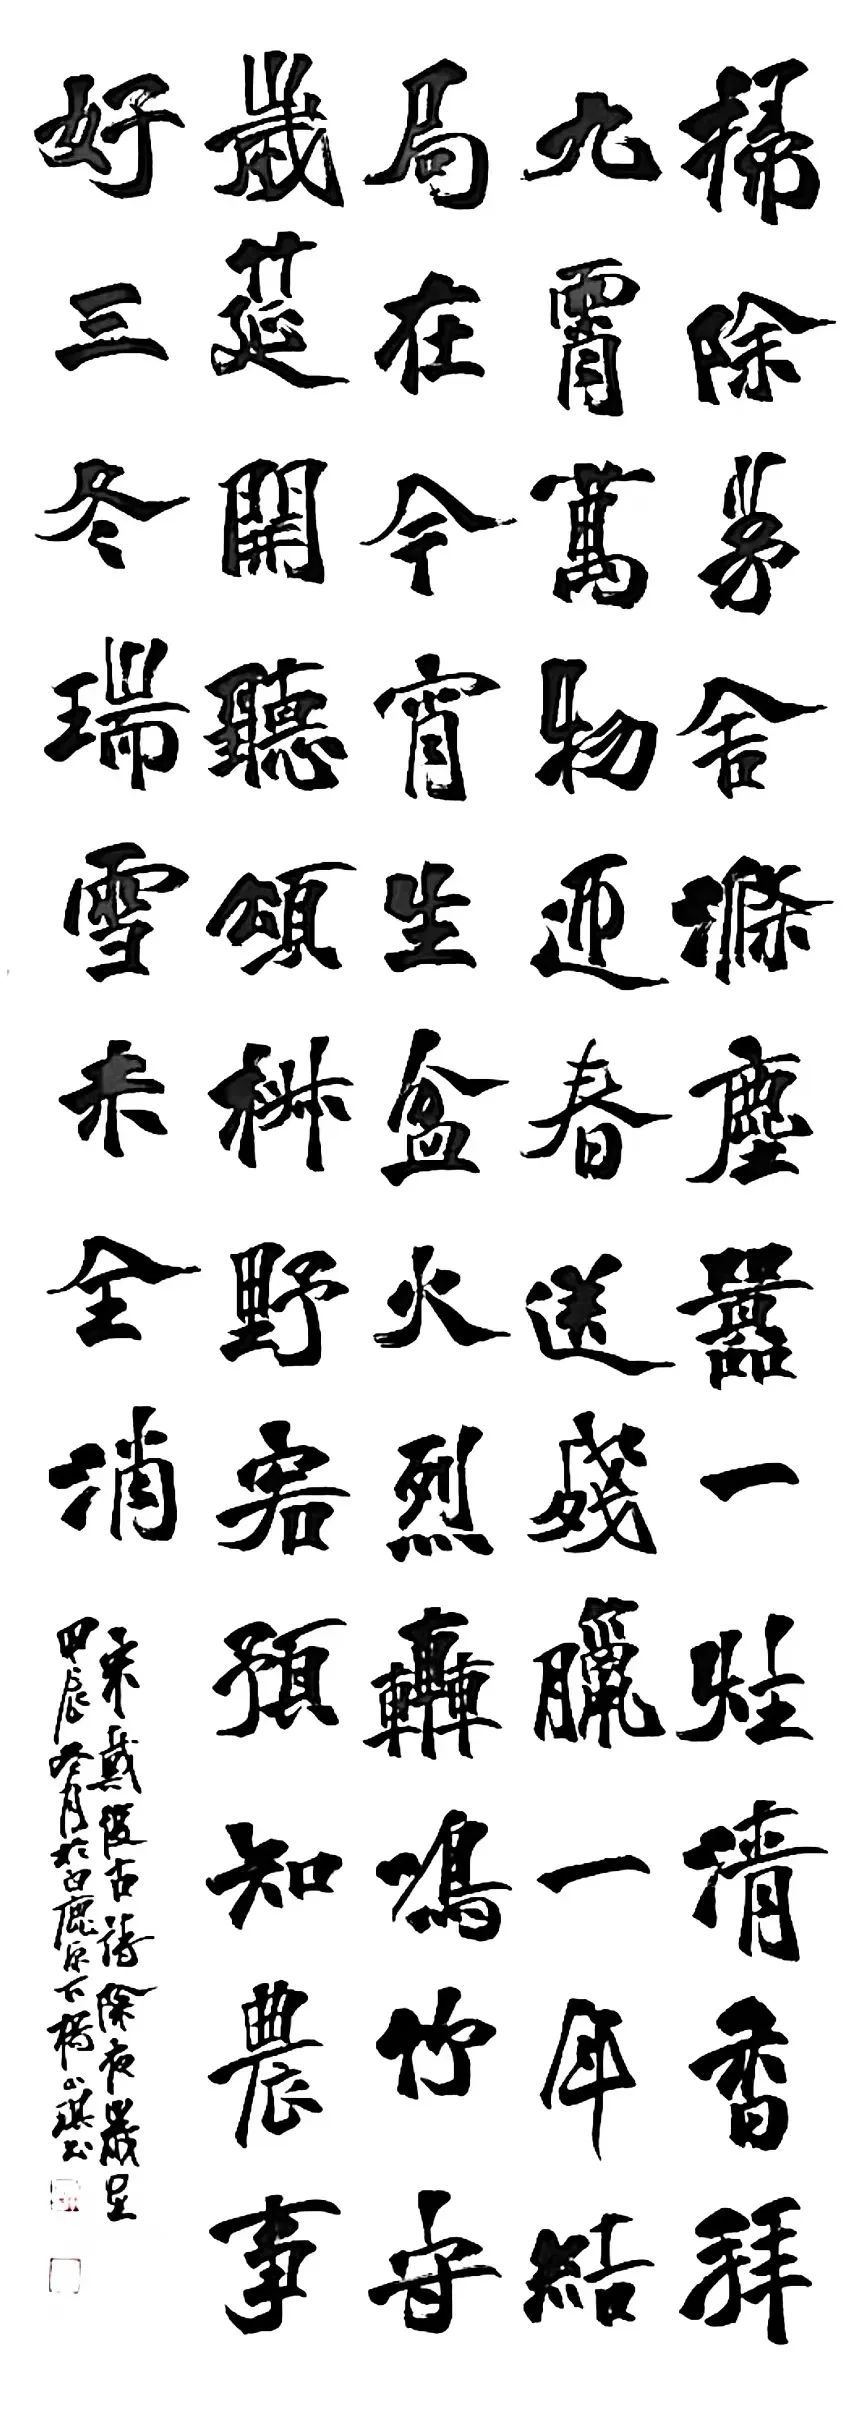 掃除茅舍滌塵囂一炷清香拜
九霄萬物迎春送殘臘一年結
局在今宵生盆火烈轟鳴竹守
歲筵開聽頌椒野客預知農事
好三冬瑞雪未全消
宋戴復古詩除夜歲呈
甲辰冬月於白鹿原下楊小琪書